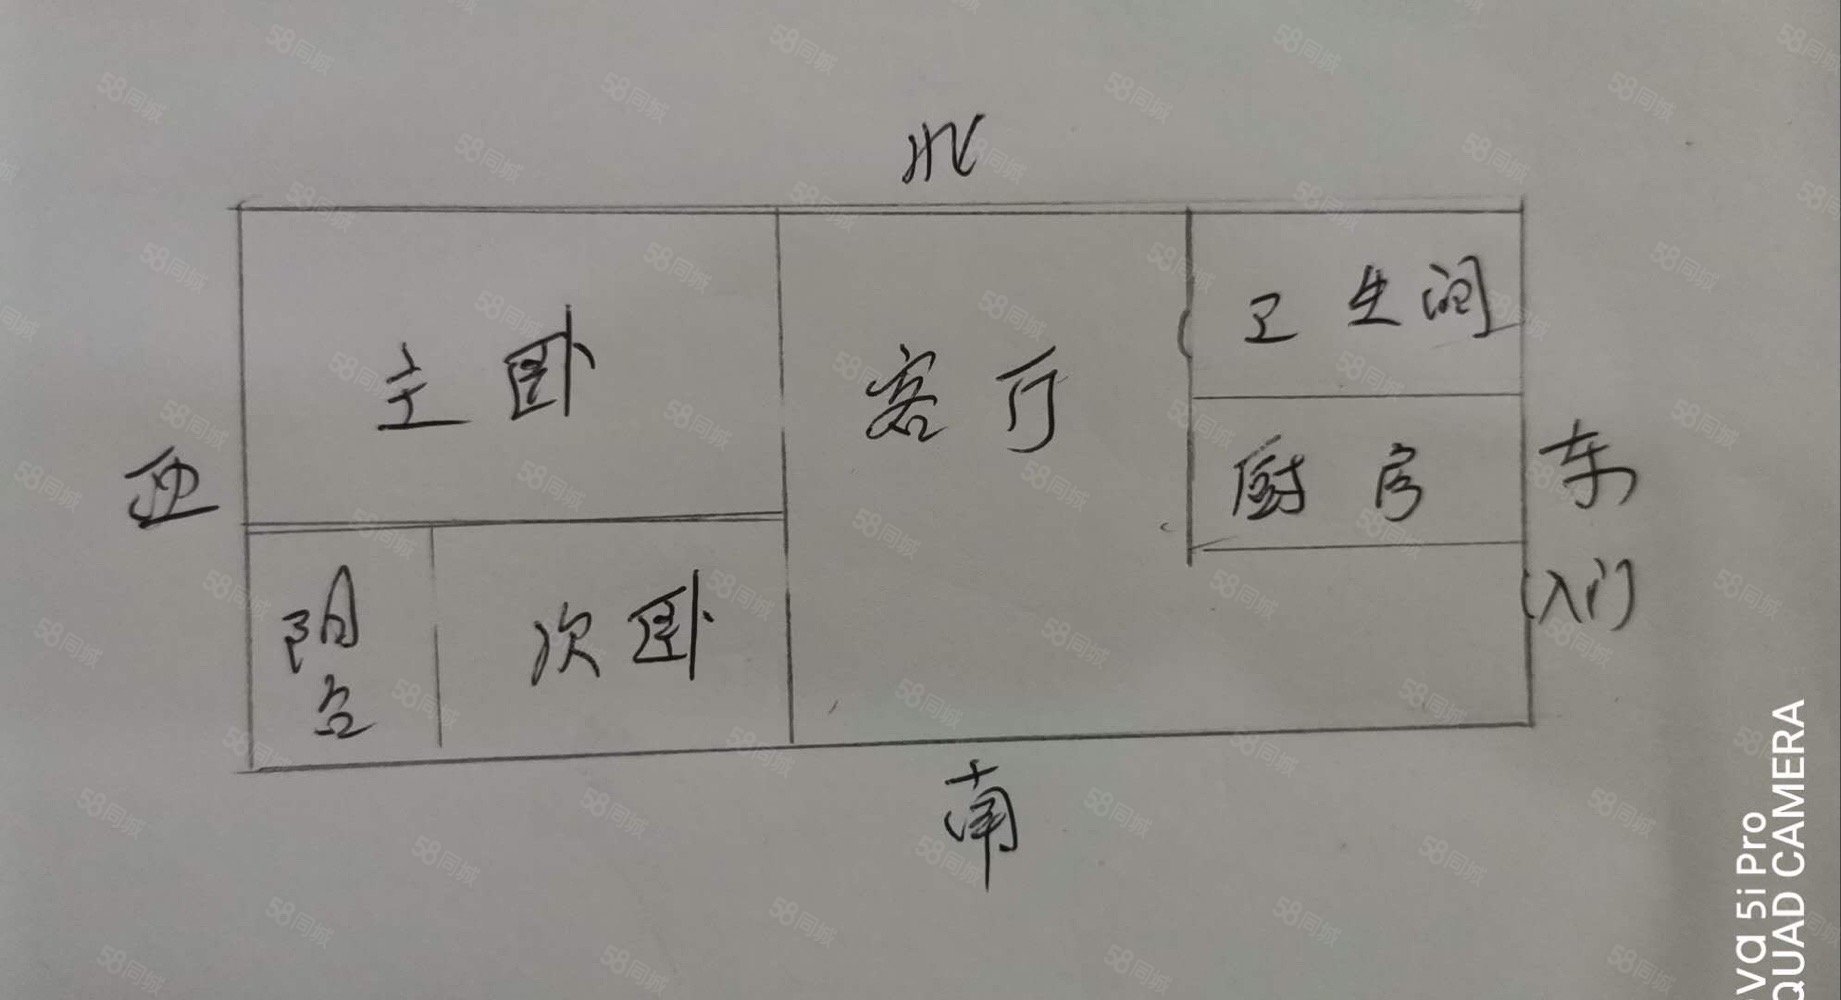 北
卫生间
主卧
客厅
西
厨房
东
(入门)
阳台
次卧
南
va 5i Pro
QUAD CAMERA
58同城